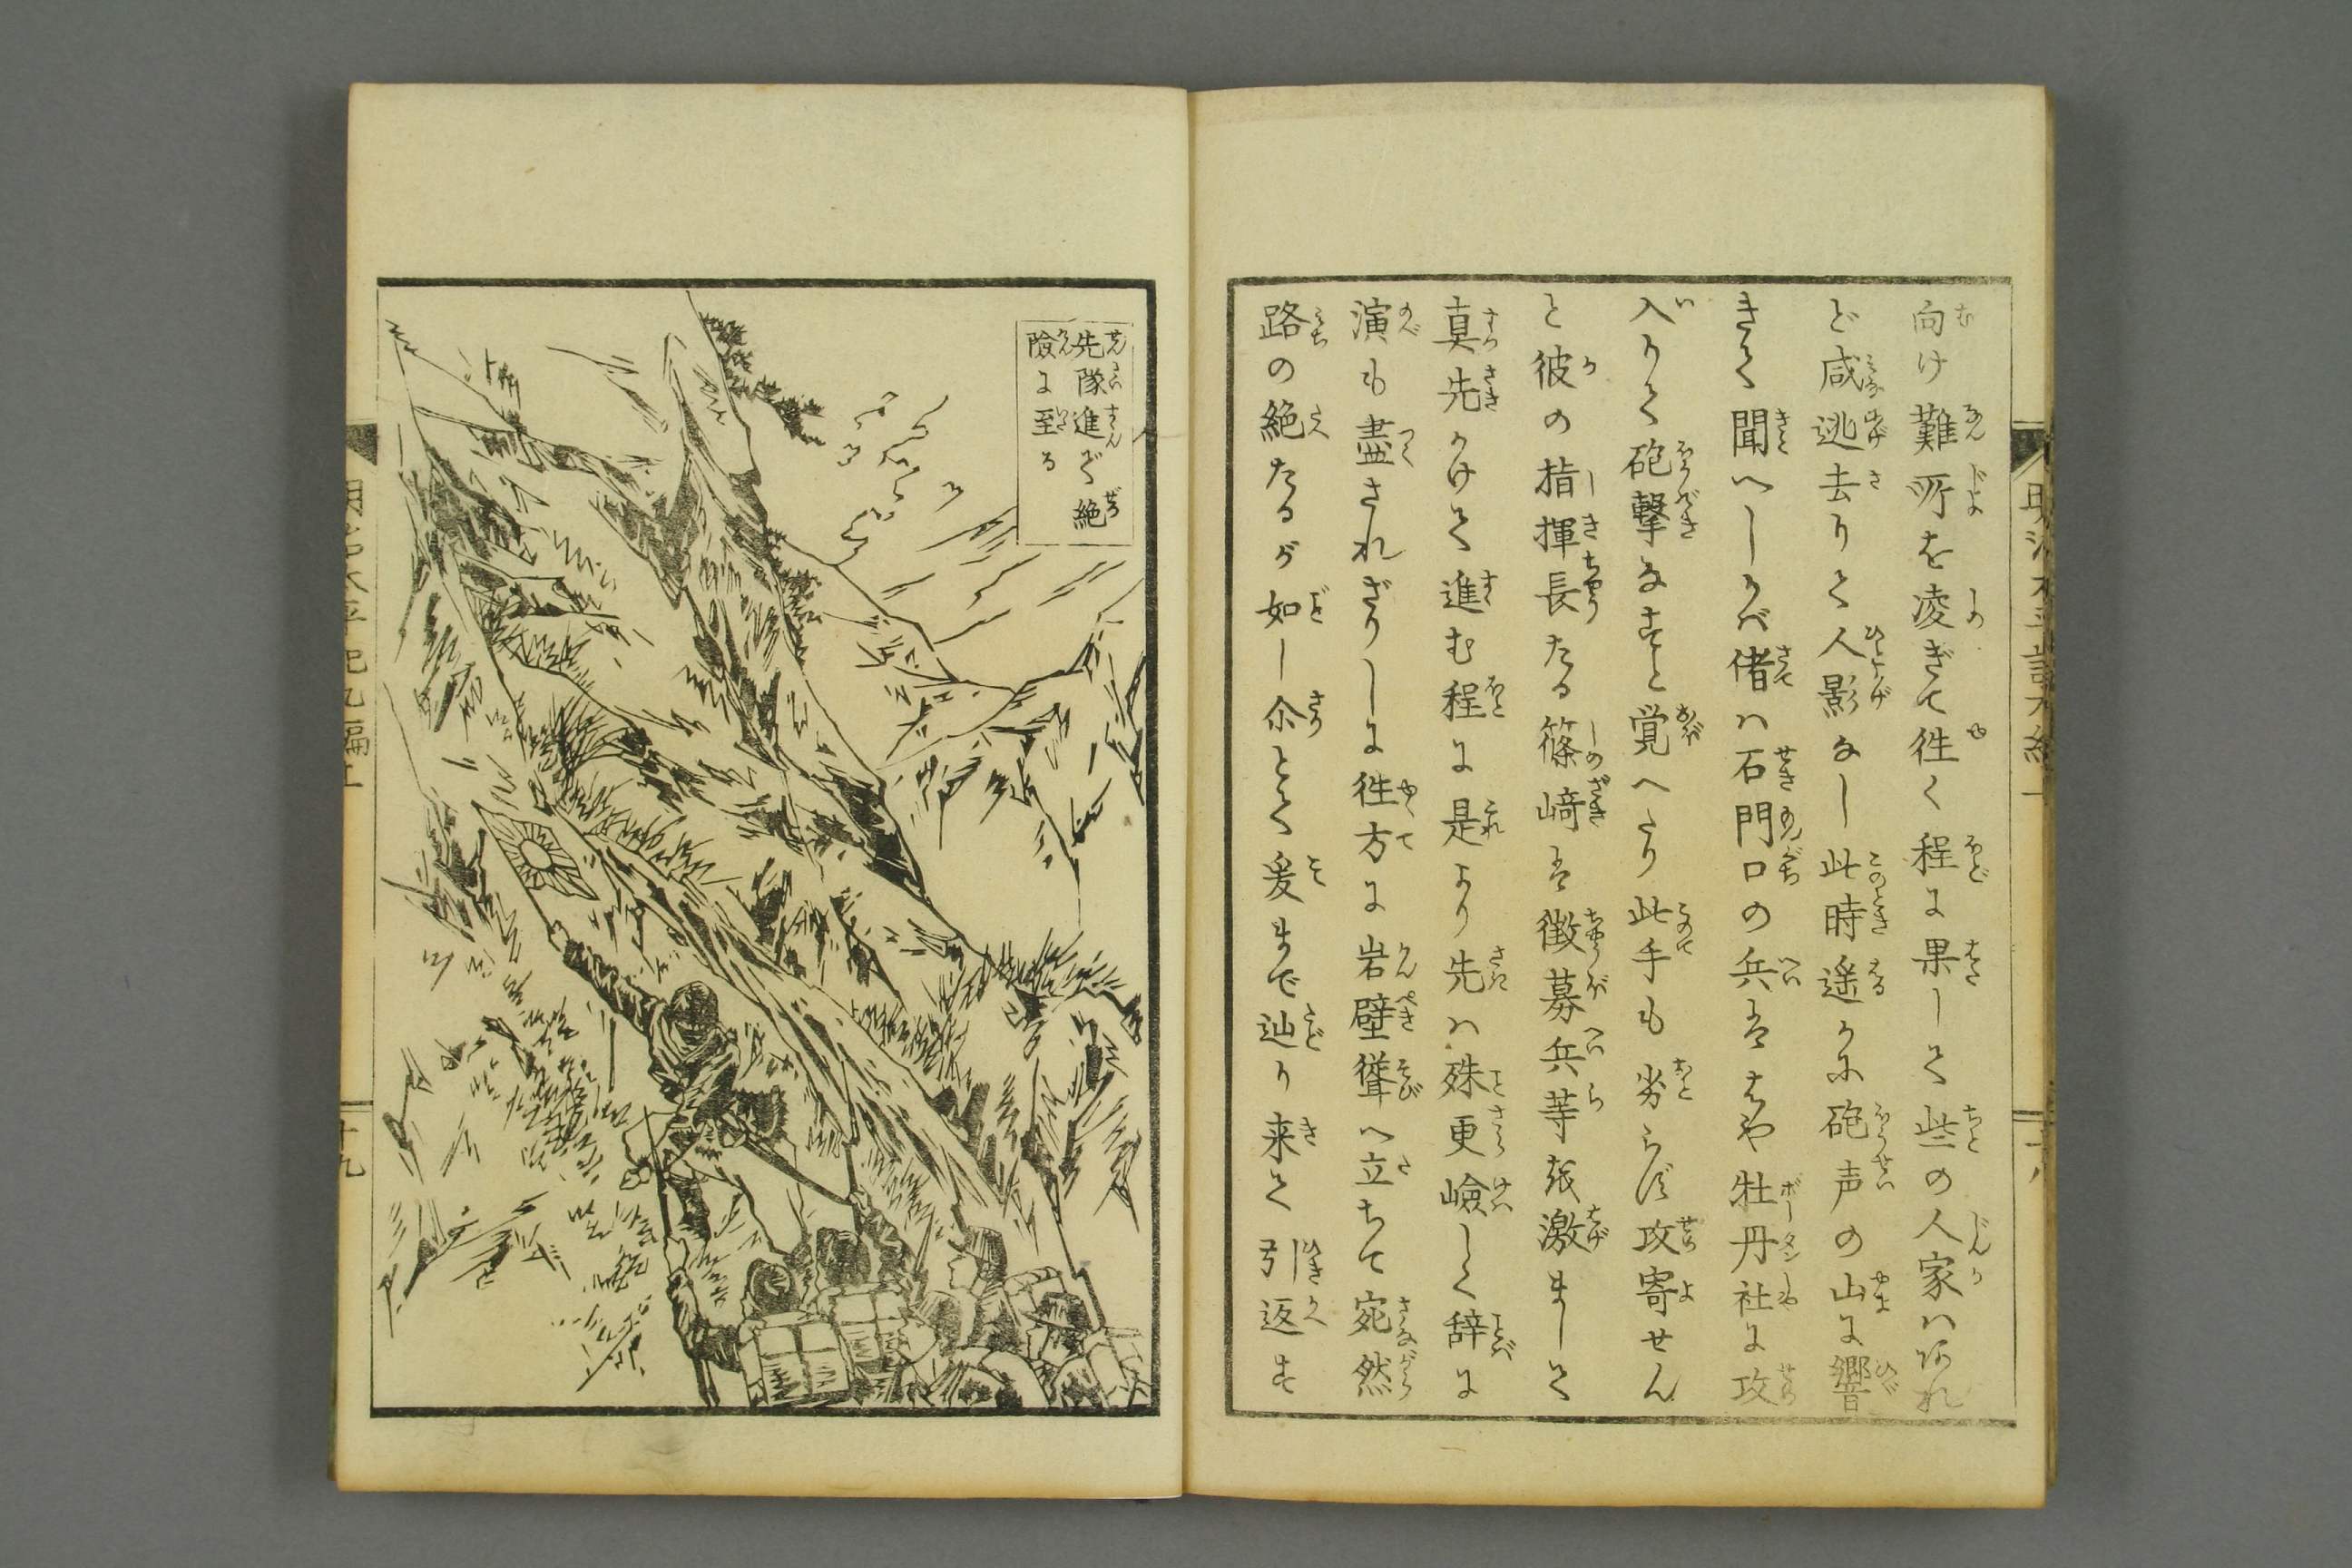 向け難所を凌ぎて徃く程に果して些の人家ハあれ
ど咸逃去りて人影なし此時遥かに砲声の山に響
きて聞へしかバ偖ハ石門口の兵ははや牡丹社に攻
入りて砲撃なすと覚へたり此手も劣らず攻寄せん
と彼の指揮長たる篠﨑は徴募兵等を激まして
真先かけて進む程に是より先ハ殊更嶮しく辞に
演も盡されざりしに徃方に岩壁聳へ立ちて宛然
路の絶たるが如し尒とて爰まで辿り来て引返す
先隊進で絶
險に至る
十九